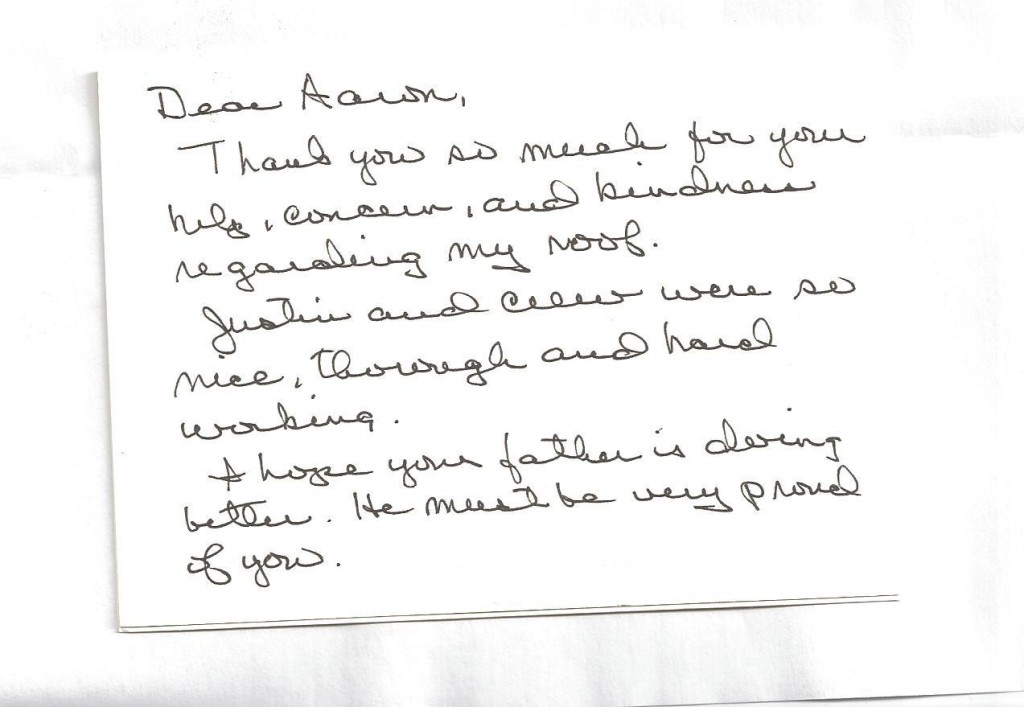 Dear Aaron,
Thank you so much for your
help, concern, and kindness
regarding my roof.
Justin and crew were so
nice, thorough and hard
working.
I hope your father is doing
better. He must be very proud
of you.